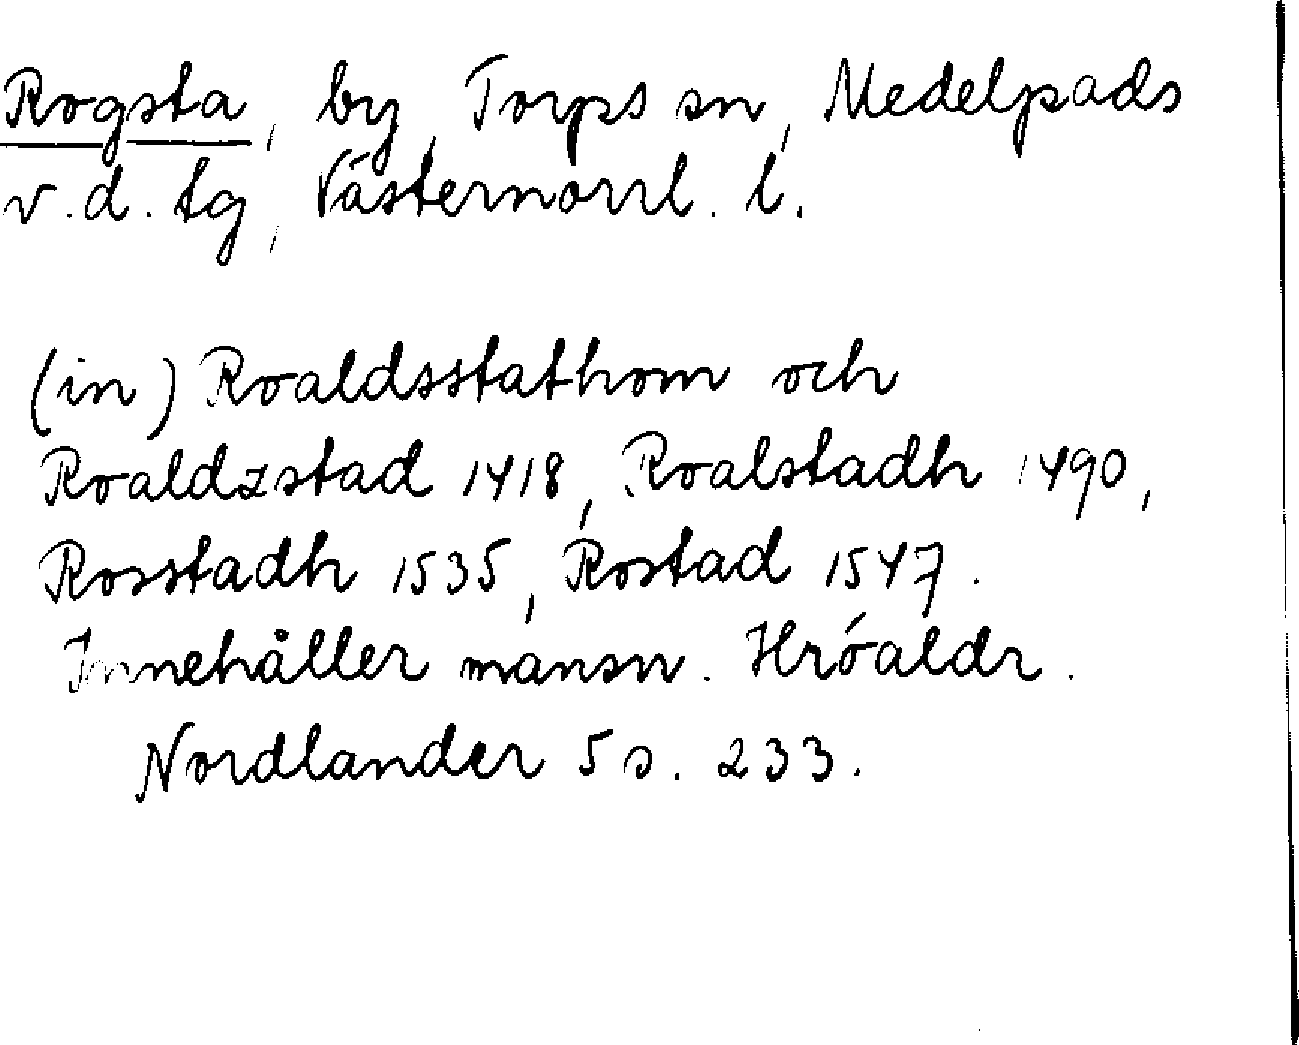 Rogsta, by, Torps sn, Medelpads
v.d. tg, Västernorrl. l.
(in) Roaldsstathom och
Roaldzstad 1418, Roalstadh 1490,
Rosstadh 1535, Rostad 1547.
Innehåller mansn. Hróaldr.
Nordlander 5 s. 233.